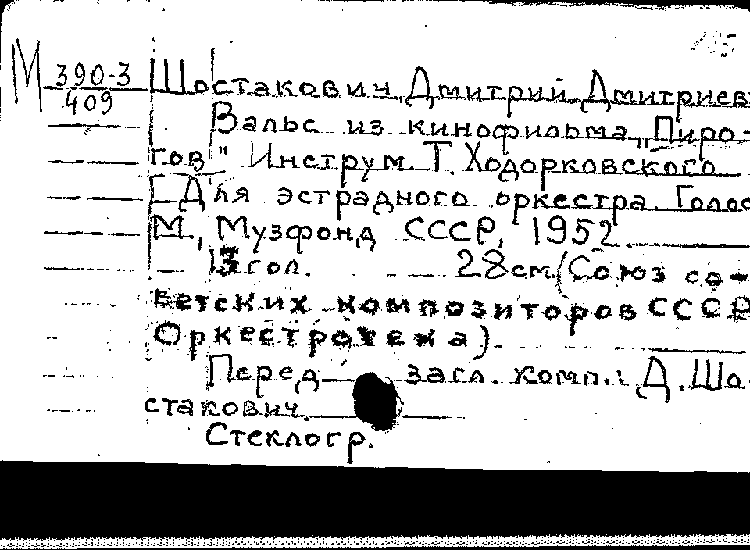 М 390-3 Шостакович, Дмитрий Дмитриев
409 Вальс из кинофильма „Пиро-
гов" Инструм. Т. Ходорковского
[Для эстрадного оркестра. Голос
М., Музфонд СССР, 1952.
13 гол. 28 см. (Союз со-
ветских композиторов СССР
Оркестротека).
Перед загл. комп.: Д. Шо-
стакович.
Стеклогр.